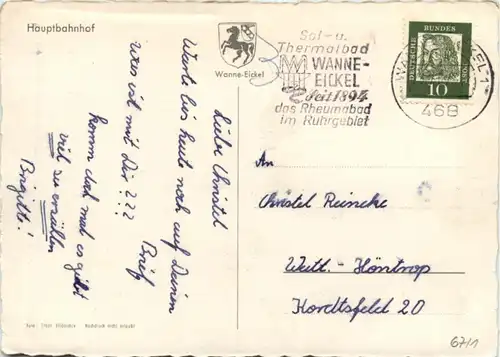 Hauptbahnhof
Wanne-Eickel
Liebe Christel
Warte bis heute noch auf Deinen
Brief
was ist mit Dir???
komm doch mal es gibt
viel zu erzählen
Brigitte!
Sol- u.
Thermalbad
WANNE-
EICKEL
Seit 1894
das Rheumabad
im Ruhrgebiet
468
DEUTSCHE
BUNDES
POST
10
An
Christel Reincke
Watt.- Höntrop
Kordtsfeld 20
67/1